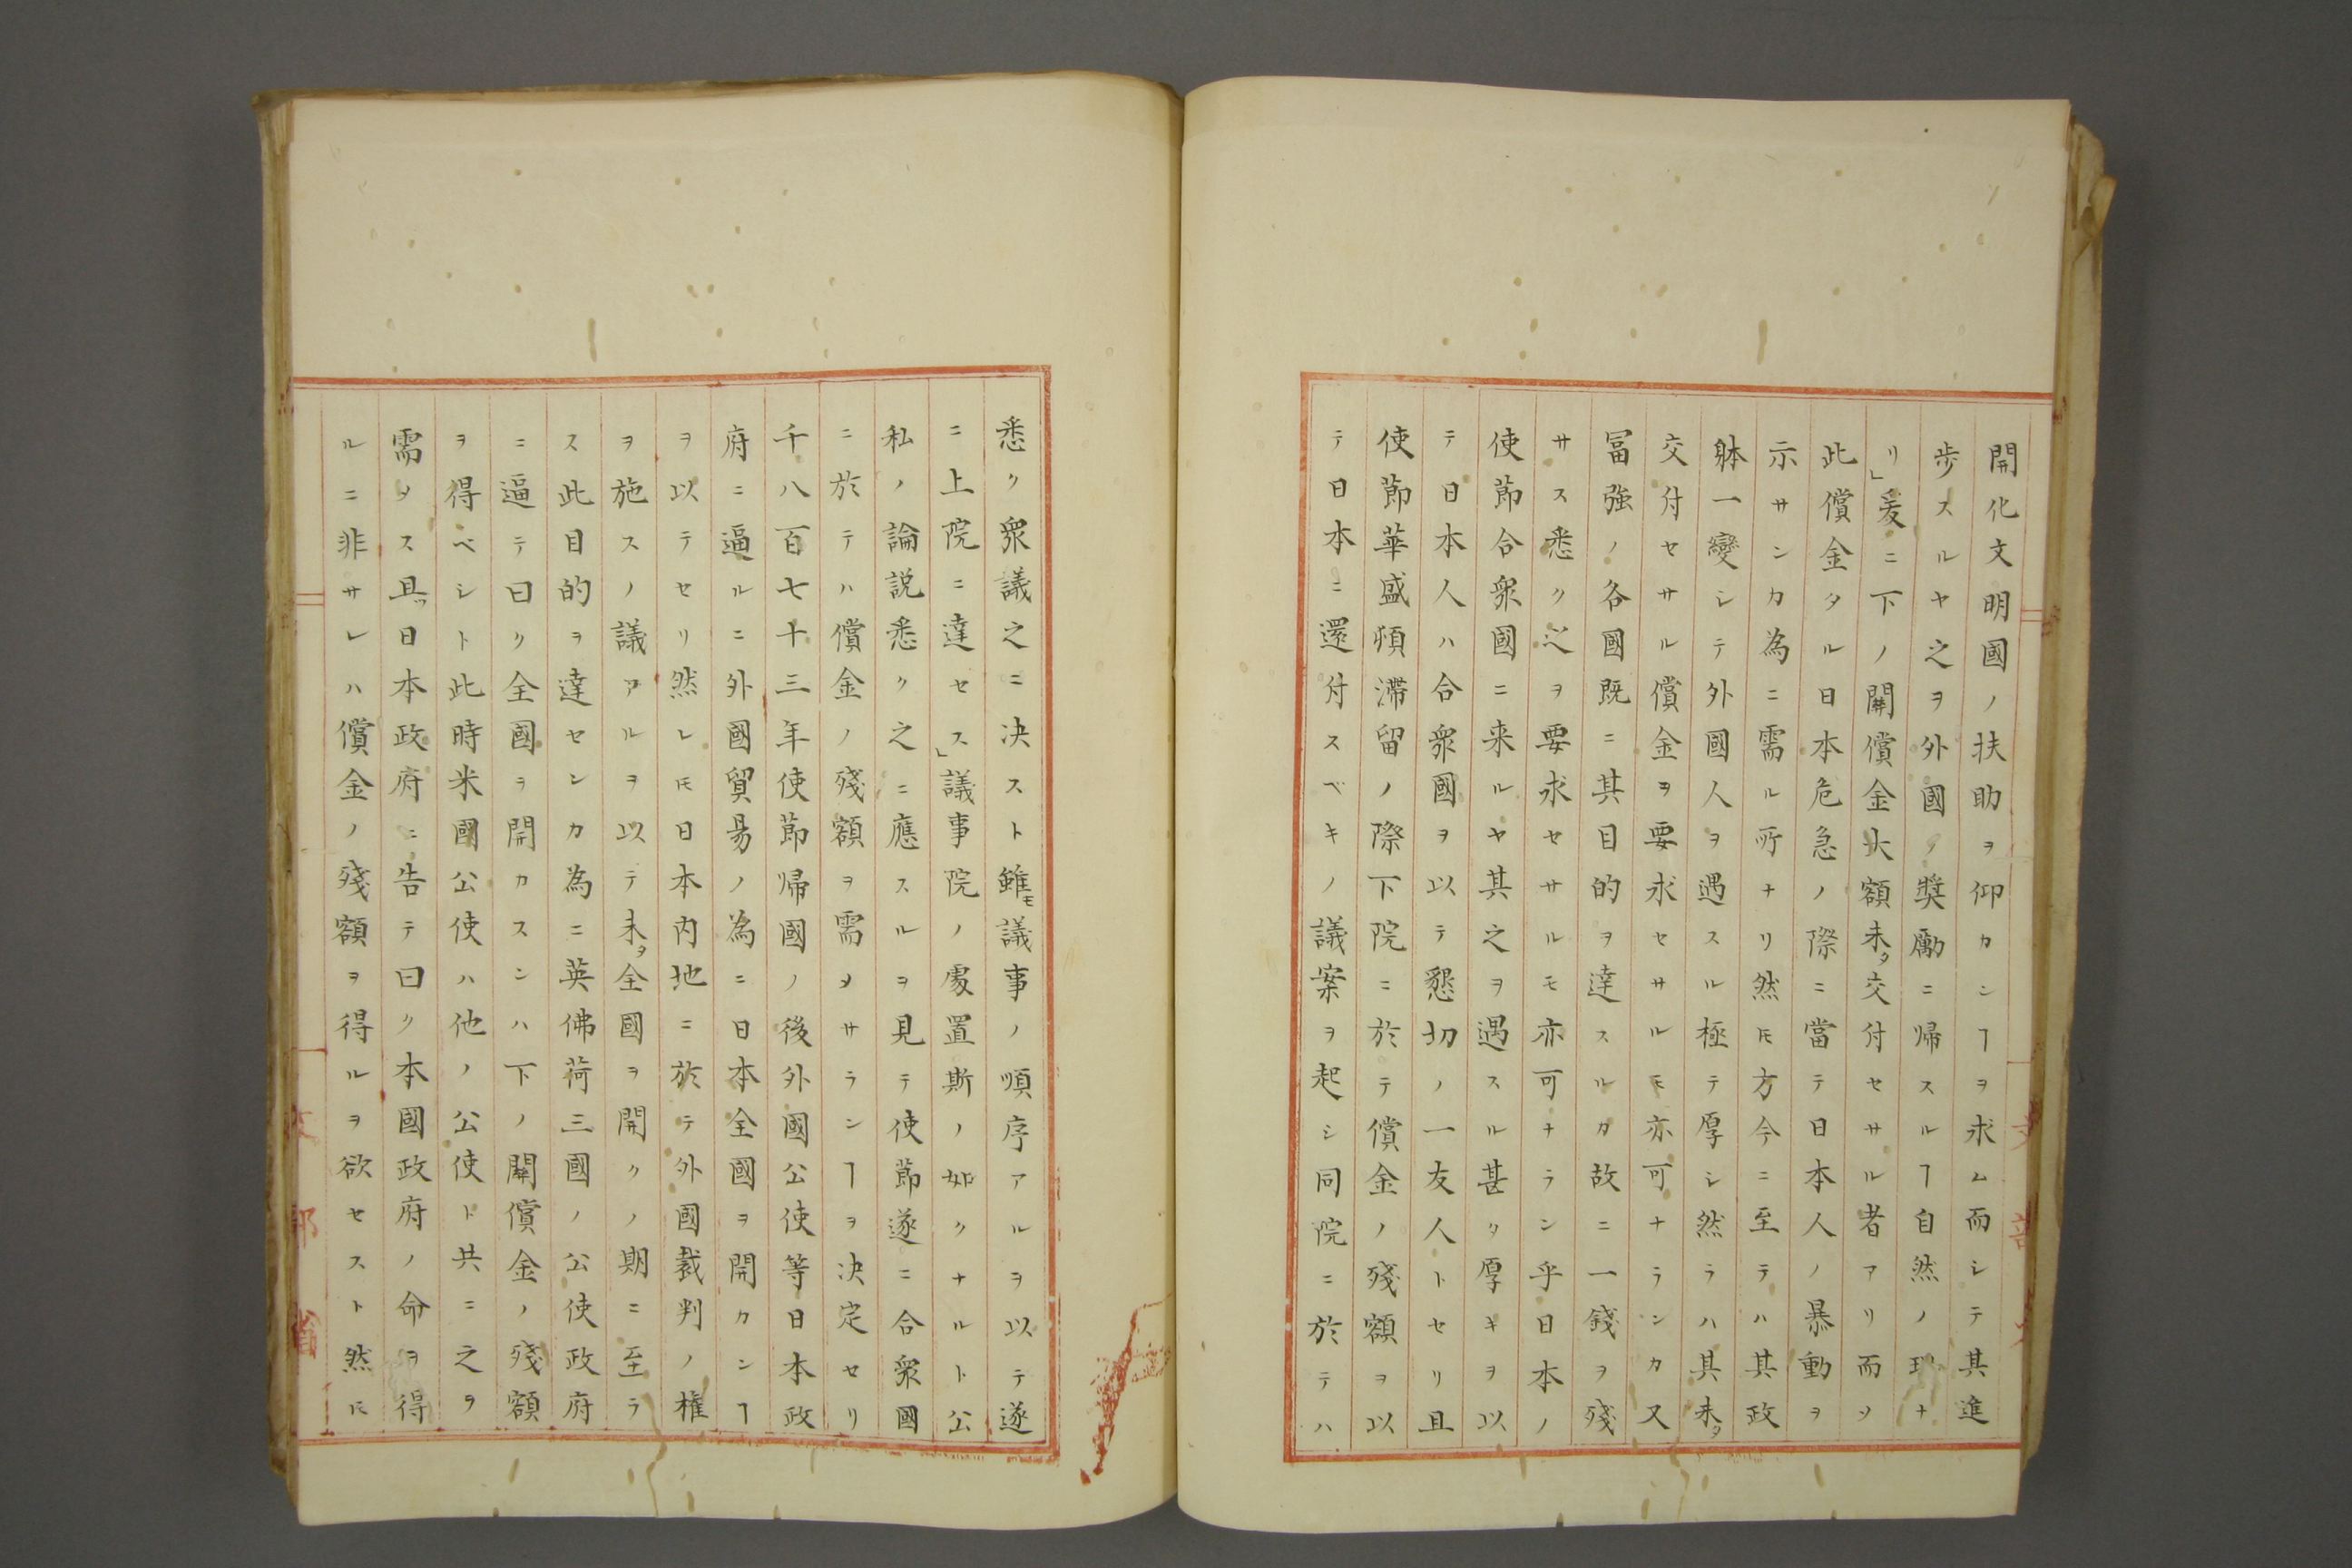 開化文明國ノ扶助ヲ仰カンヿヲ求ム而シテ其進
歩スルヤ之ヲ外國ノ獎勵ニ帰スルヿ自然ノ理ナ
リ」爰ニ下ノ關償金大額未タ交付セサル者アリ而ソ
此償金タル日本危急ノ際ニ當テ日本人ノ暴動ヲ
示サンカ為ニ需ル所ナリ然𪜈方今ニ至テハ其政
躰一變シテ外國人ヲ遇スル極テ厚シ然ラハ其未タ
交付セサル償金ヲ要求セサルモ亦可ナランカ又
冨強ノ各國既ニ其目的ヲ達スルカ故ニ一錢ヲ殘
サス悉ク之ヲ要求セサルモ亦可ナラン乎日本ノ
使節合衆國ニ来ルヤ其之ヲ遇スル甚タ厚キヲ以
テ日本人ハ合衆國ヲ以テ懇切ノ一友人トセリ且
使節華盛頓滞留ノ際下院ニ於テ償金ノ殘額ヲ以
テ日本ニ還付スベキノ議案ヲ起シ同院ニ於テハ
悉ク衆議之ニ決スト雖モ議事ノ順序アルヲ以テ遂
ニ上院ニ達セス」議事院ノ處置斯ノ如クナルト公
私ノ論説悉ク之ニ應スルヲ見テ使節遂ニ合衆國
ニ於テハ償金ノ殘額ヲ需メサランヿヲ決定セリ
千八百七十三年使節帰國ノ後外國公使等日本政
府ニ逼ルニ外國貿易ノ為ニ日本全國ヲ開カンヿ
ヲ以テセリ然レ𪜈日本内地ニ於テ外國裁判ノ權
ヲ施スノ議アルヲ以テ未タ全國ヲ開クノ期ニ至ラ
ス此目的ヲ達センカ為ニ英佛荷三國ノ公使政府
ニ逼テ曰ク全國ヲ開カスンハ下ノ關償金ノ殘額
ヲ得ベシト此時米國公使ハ他ノ公使ト共ニ之ヲ
需メス且ツ日本政府ニ告テ曰ク本國政府ノ命ヲ得
ルニ非サレハ償金ノ殘額ヲ得ルヲ欲セスト然𪜈
文部省